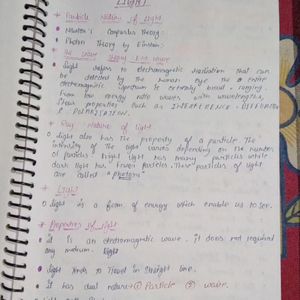 Light
Particle Nature of Light
Newton's Corpuscles Theory.
Photon Theory by Einstein.
The wave theory
Light refers to electromagnetic radiation that can
be detected by the human eye. The entire
electromagnetic spectrum is extremely broad, ranging
from low energy radio waves with wavelengths,
These properties such as INTERFERENCE
POLARIZATION.
Ray Nature of light
light also has the property of a particle. The
intensity of the light varies depending on the number
of particle's Bright light has many particles while
dark light has fewer particles. These particles of light
are called "photons"
Light
light is a form of energy which enable us to see.
Properties of light
It is an electromagnetic wave. it does not required
any medium.
Light tends to Travel in Straight line.
It has dual nature ① Particle ② wave.